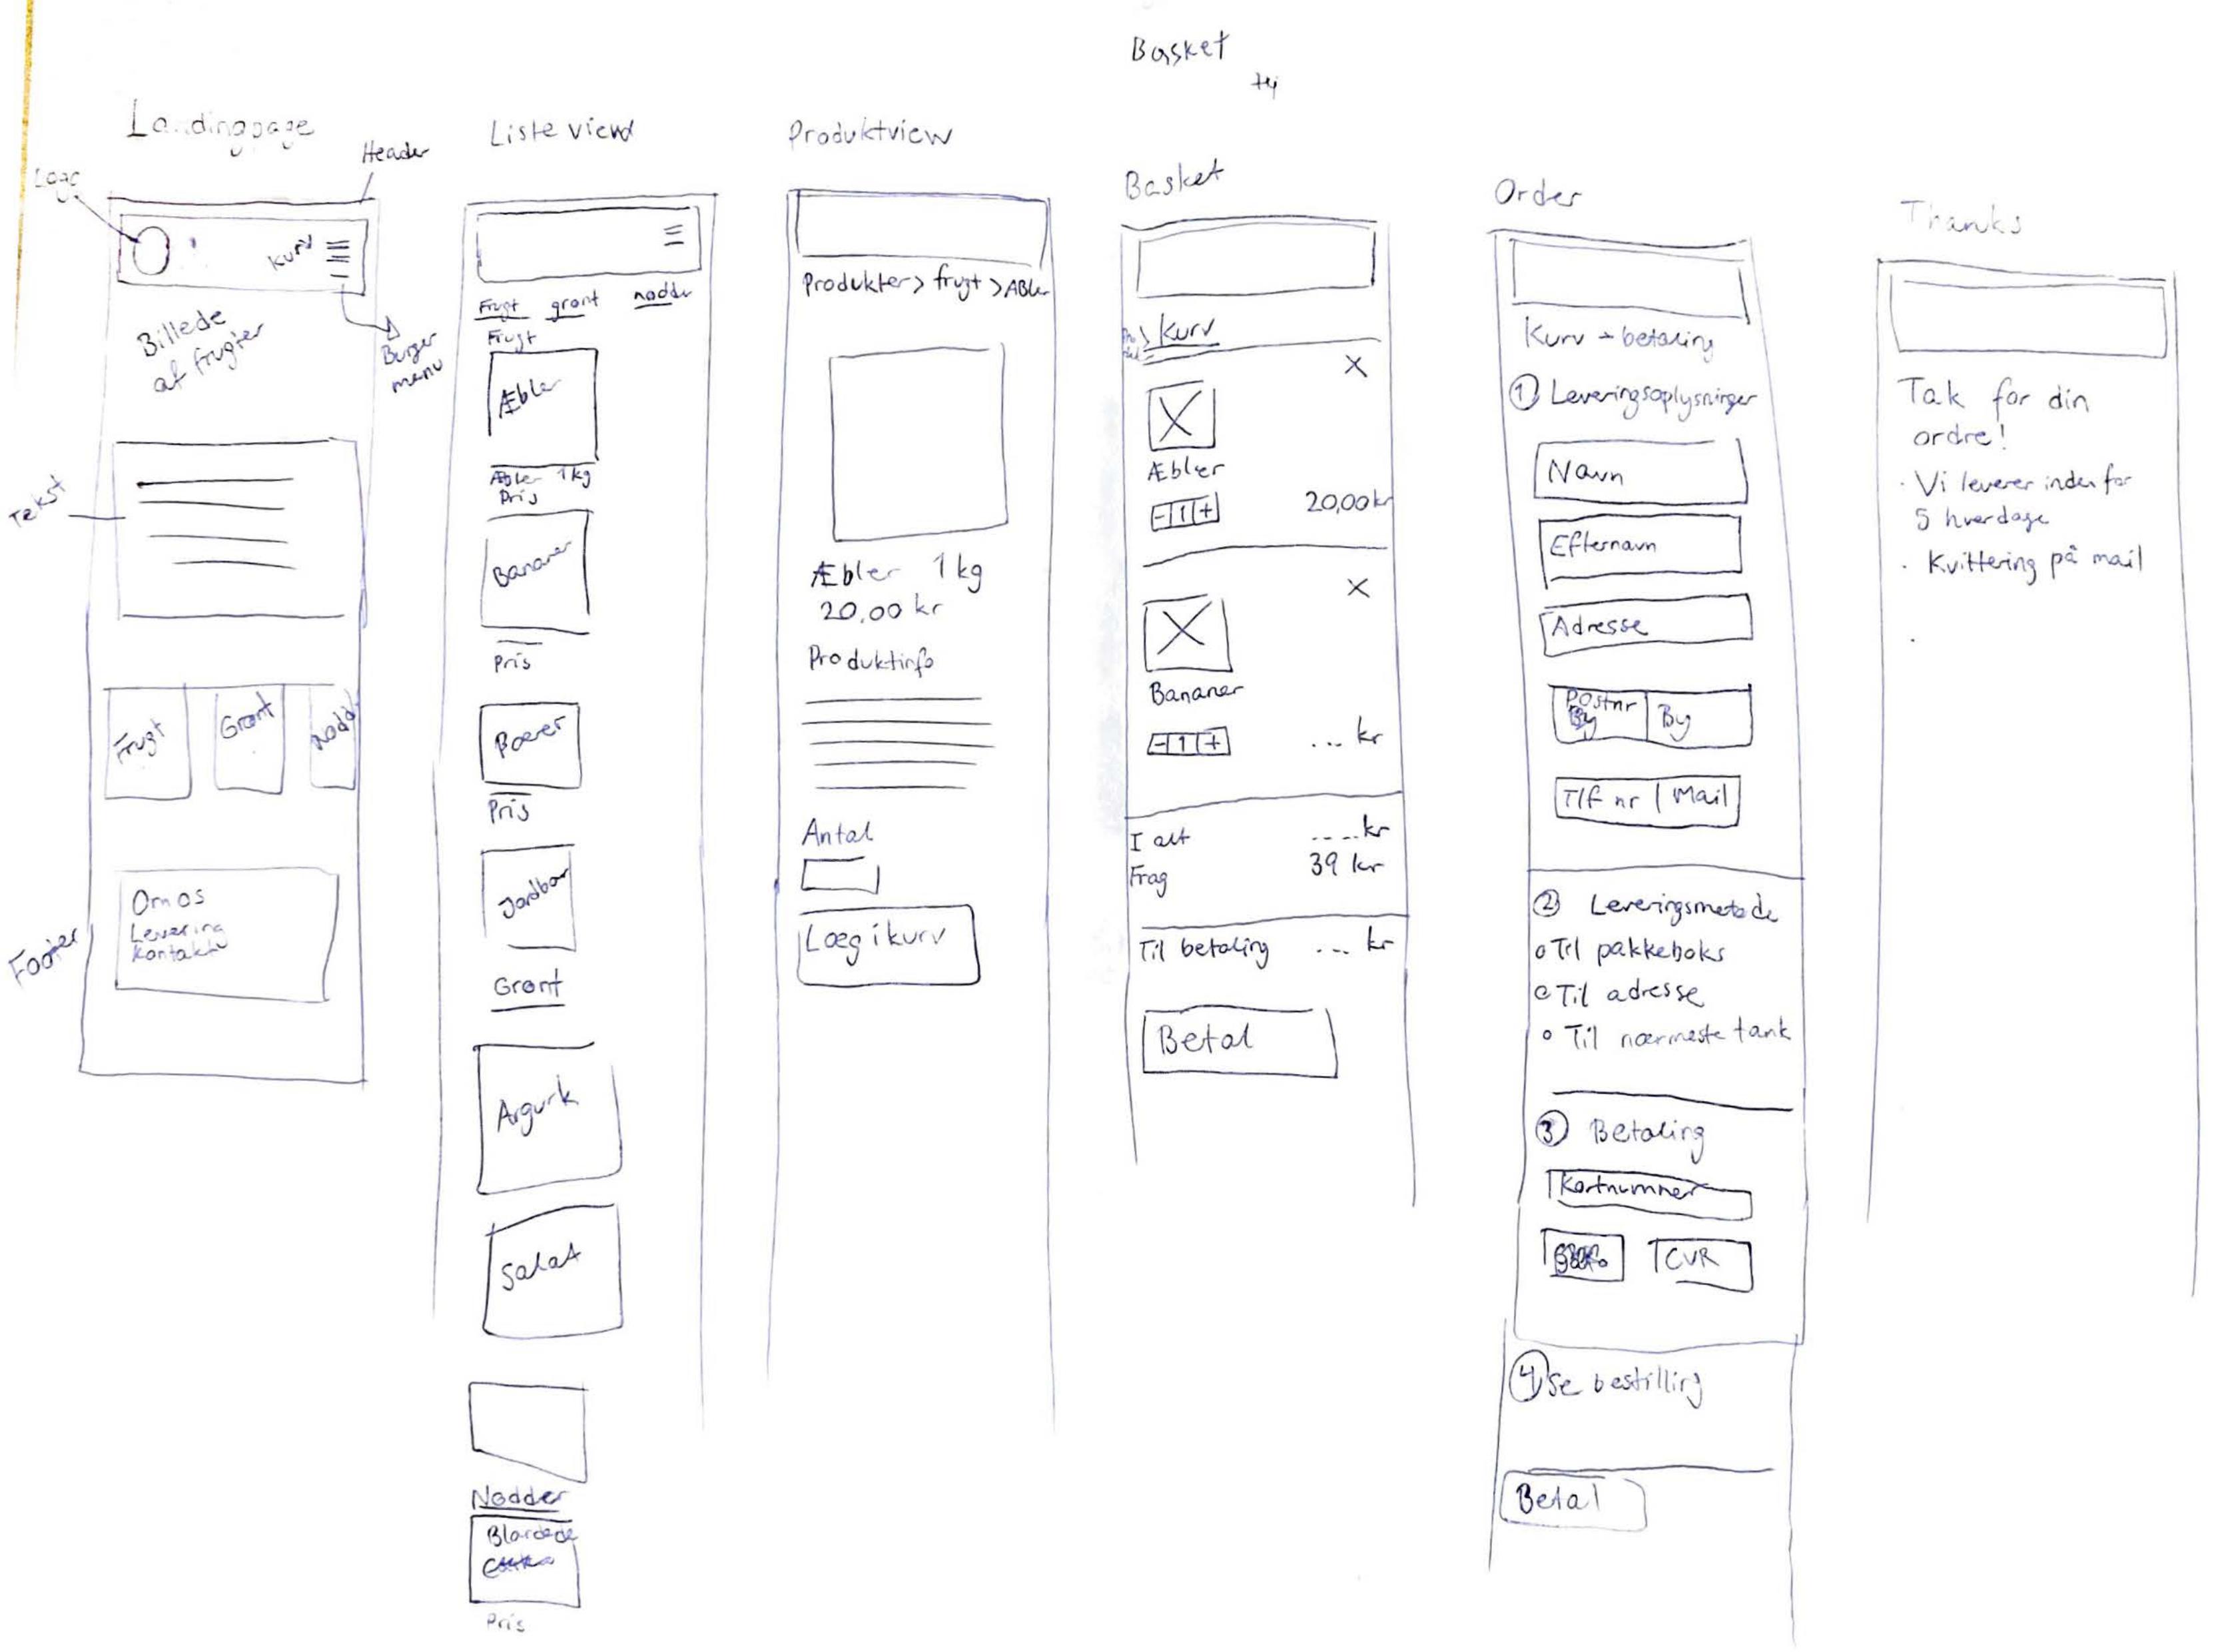 Basket
Landingpage
Header
Logo
Kurv
Billede
af frugter
Burger
menu
Tekst
Frugt
Grønt
Nødd
Om os
Levering
Kontakt
Footer
Liste view
Frugt grønt nødder
Frugt
Æbler
Æbler 1 kg
Pris
Bananer
Pris
Pærer
Pris
Jordbær
Grønt
Argurk
Salat
Nødder
Blandede
Pris
Produktview
Produkter > frugt > Æbler
Æbler 1 kg
20,00 kr
Produktinfo
Antal
Læg i kurv
Basket
> Kurv
X
Æbler
- 1 +
20,00 kr
X
Bananer
- 1 +
... kr
I alt ....kr
Frag 39 kr
Til betaling ... kr
Betal
Order
Kurv → betaling
1 Leveringsoplysninger
Navn
Efternavn
Adresse
Postnr
By
Tlf nr | Mail
2 Leveringsmetode
o Til pakkeboks
o Til adresse
o Til nærmeste tank
3 Betaling
Kortnummer
CVR
4 Se bestilling
Betal
Thanks
Tak for din
ordre!
· Vi leverer inden for
5 hverdage
· Kvittering på mail